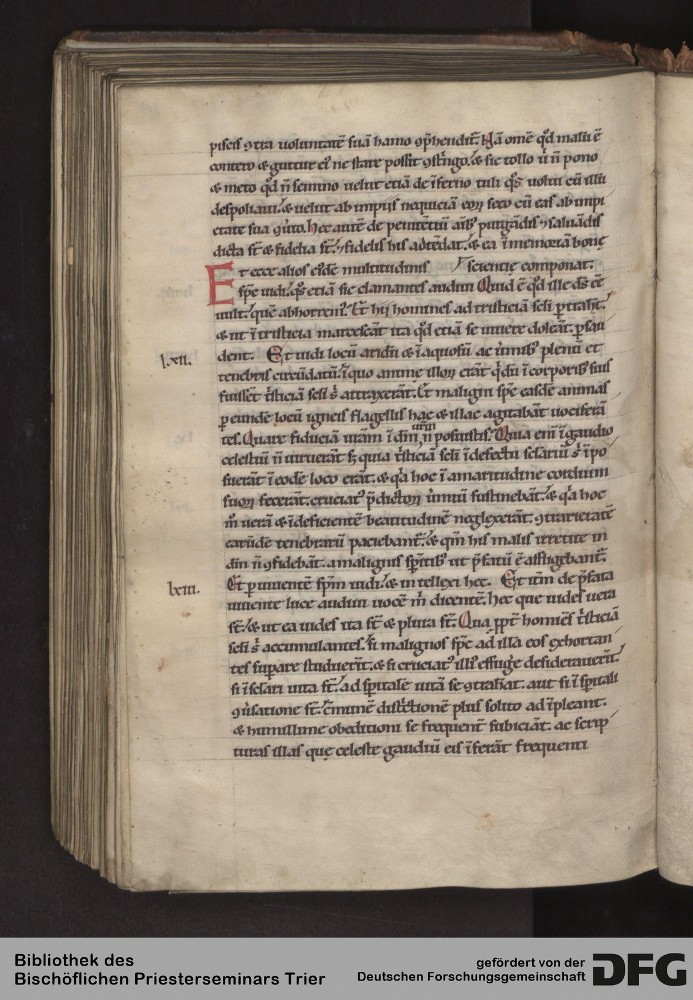 piscis ꝯtra voluntatē suā hamo ꝯp̄hendit᷑. Nā omē qđ malū ē
contero ⁊ guttur ei᷒ ne stare possit ꝯstͥngo. ⁊ sic tollo ⁊ n̄ pono
⁊ meto qđ n̄ semino velut etiā de īferno tuli qͦs volui cū illū
despoliavi. ⁊ velut ab impijs nequiciā eoꝝ seco cū eas ab impi
etate sua ꝯv̓to. Hec autē de penitētiū aīab᷒ purgādis ⁊ salvādis
dicta st̄ ⁊ fidelia st̄. ⁊ fidelis his adtēdat. ⁊ ea ī memoriā bonę
Et ecce alios eīsdē multitudinis scientię componat.
sp̄c vidi. qͦs etiā sic clamantes audivi Quid ē qđ ille ds̄ cē
vult. quē abhorrem᷒. Et hij homines ad tristiciā seculi ptrahūt.
⁊ ut ī tristicia marcescāt ita qđ etiā se vivere doleāt. p̱sua
dent. Et vidi locū aridū ⁊ īaquosū ac v̓mib᷒ plenū et
lxii.
tenebris circūdatū. ī quo anime illoꝝ erāt qͥ dū ī corporib᷒ suis
fuissēt tͥsticiā seculi sͥ attraxerāt. Et maligni sp̄c easdē animas
p̱ eundē locū igneis flagellis hac ⁊ illac agitabāt vociferā
tes. Quare fiduciā vr̄am ī dn̄m vr̄m n̄ posuistis. Quia eni ī gaudio
celestiū n̄ vixerāt sꝫ quia tͥsticiā seculi ī defectu seculariū sͥ īpo
suerāt ī eodē loco erāt. ⁊ qͥa hoc ī amaritudine cordium
suoꝝ fecerāt. cruciat᷒ p̄dictoꝝ v̓miū sustinebāt. ⁊ qͥa hoc
m̄ verā ⁊ īdeficientē beatitudinē neglexerāt. ꝯtrarietatē
earūdē tenebrarū paciebant᷑. ⁊ qm̄ his malis irretite in
dm̄ n̄ ꝯfidebāt. a malignis spiritib᷒ ut p̄fatū ē affligebant᷑.
Et p̱ viventē spm̄ vidi. ⁊ intellexi hec. Et itm̄ de p̄fata
lxiii.
vivente luce audivi vocē m̄ dicentē. Hec que vides vera
st̄. ⁊ ut ea vides ita st̄ ⁊ plura st̄. Qua ꝓpt̄ homīes tͥsticiā
seculi sͥ accumulantes. si malignos sp̄c ad illā eos exhortan
tes supare studuerīt. ⁊ si cruciat᷒ illi᷒ effuḡe desideraverīt.
si ī seculari vita st̄. ad spiritualē vitā se ꝯtrahāt. aut si ī spirituali
ꝯv̓satione st̄. cōmunē districtionē plus solito ad īpleant.
⁊ humillime obeditioni se frequent̄ subiciāt. ac scrip
turas illas quę celeste gaudiū eis īferāt frequenti
Bibliothek des
Bischöflichen Priesterseminars Trier
gefördert von der
Deutschen Forschungsgemeinschaft
DFG